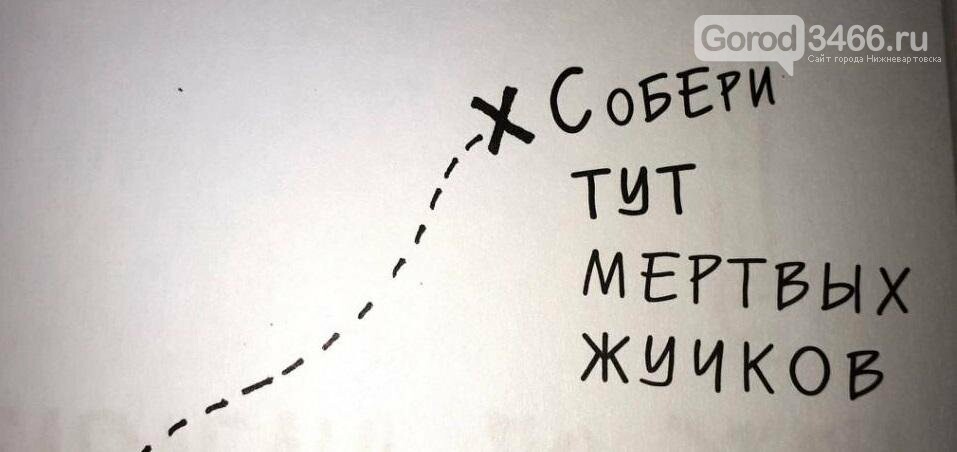 Gorod3466.ru
Сайт города Нижневартовска
х Собери
тут
мертвых
жучков